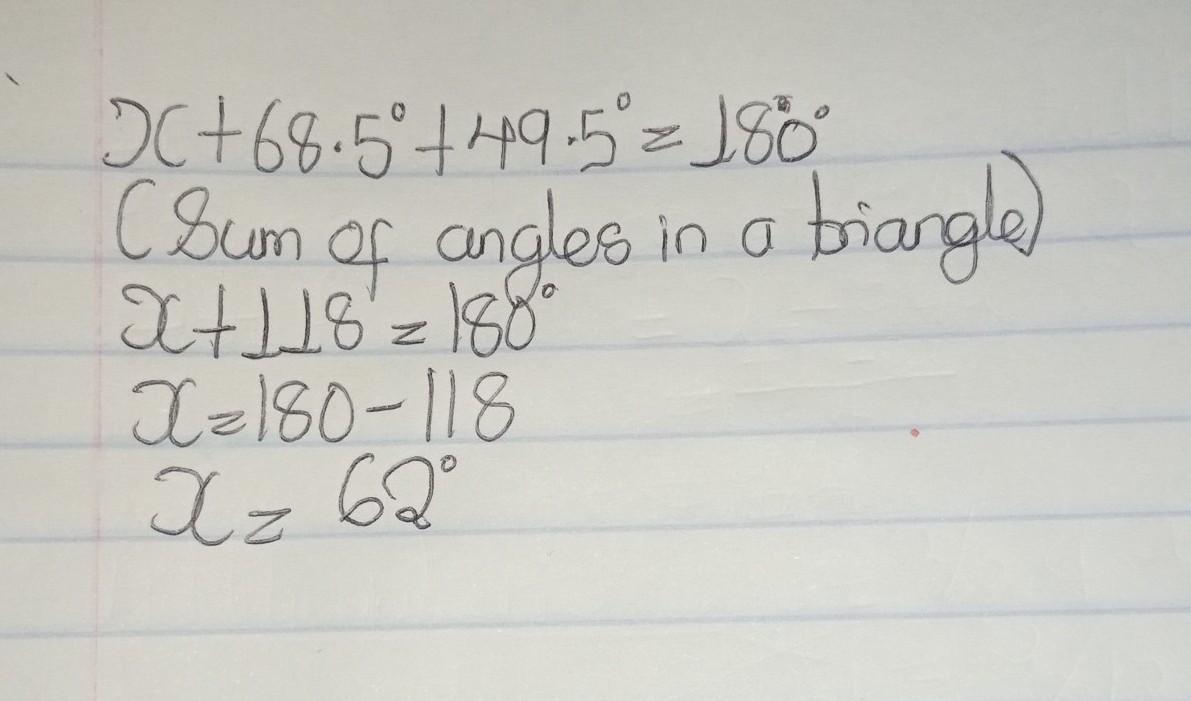 x+68.5°+49.5°=180°
(Sum of angles in a triangle)
x+118°=180°
x=180-118
x= 62°